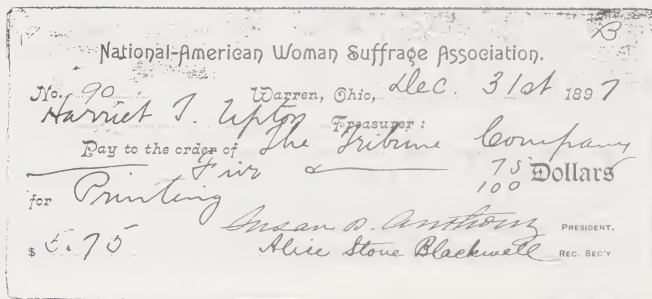 B
National-American Woman Suffrage Association.
No. 90 Warren, Ohio, Dec. 31st 1897
Harriet T. Upton Treasurer:
Pay to the order of The Tribune Company
Five & 75/100 Dollars
for Printing
Susan B. Anthony PRESIDENT.
$ 5.75 Alice Stone Blackwell REC. SEC'Y